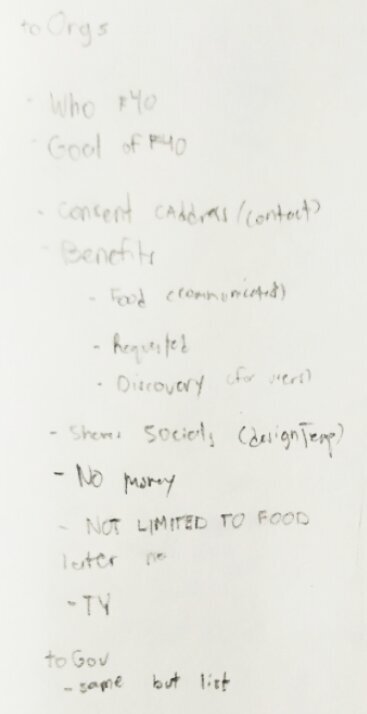 to Orgs
- Who F40
- Goal of F40
- Consent (Address/contact)
- Benefits
- Food (communicated)
- Requested
- Discovery (for users)
- Share Socials (design Temp)
- No money
- NOT LIMITED TO FOOD
later
- TY
to Gov
- same but list